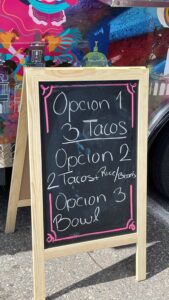 Opcion 1
3 Tacos
Opcion 2
2 Tacos + Rice/Beans
Opcion 3
Bowl